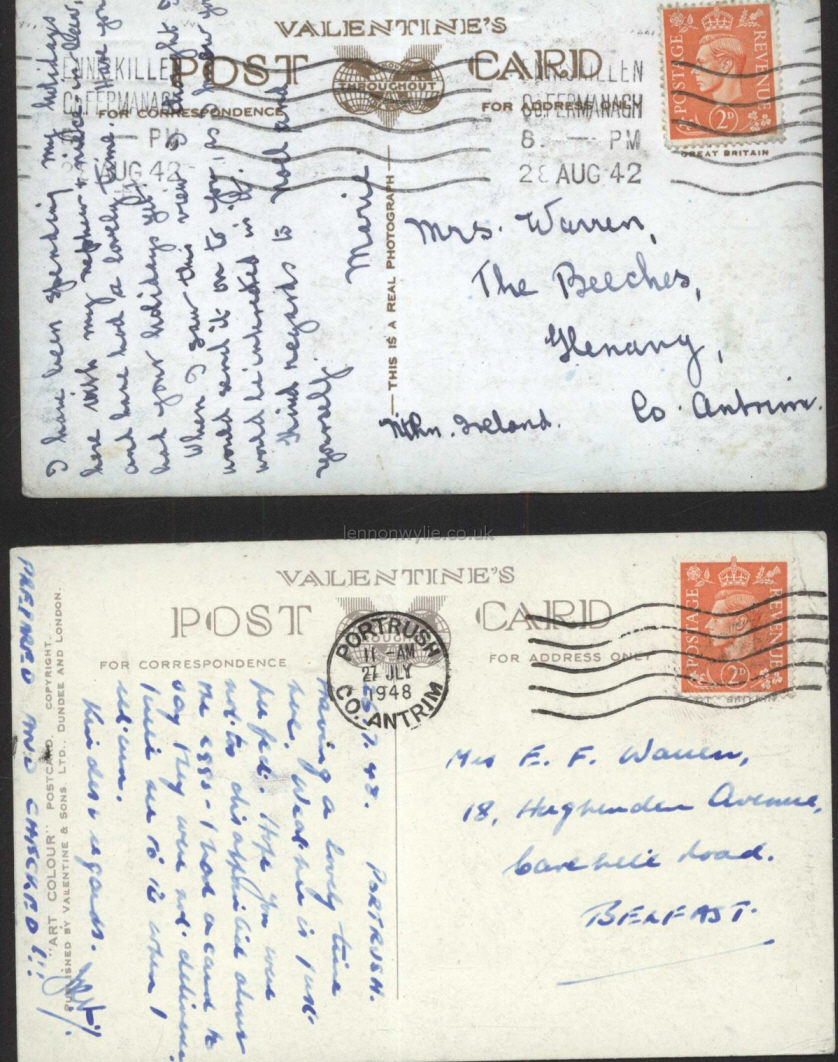 VALENTINE'S
POST CARD
THROUGHOUT
FOR CORRESPONDENCE
FOR ADDRESS ONLY
CO. FERMANAGH
PM
AUG 42
ENNISKILLEN
CO. FERMANAGH
8. — PM
28 AUG 42
POSTAGE REVENUE
2D
GREAT BRITAIN
I have been spending my holidays
here with my nephew & niece-in-law,
and have had a lovely time. Have you
had your holidays yet.
When I saw this view I thought I
would send it on to you, as I knew you
would be interested in it.
Kind regards to Noel and
yourself.
Marie
THIS IS A REAL PHOTOGRAPH
Mrs. Warren,
The Beeches,
Glenavy,
Co. Antrim.
Nthn. Ireland.
lennonwylie.co.uk
VALENTINE'S
POST CARD
FOR CORRESPONDENCE
FOR ADDRESS ONLY
PORTRUSH
11 - AM
27 JLY
1948
CO. ANTRIM
POSTAGE REVENUE
2D
PORTRUSH.
Having a lovely time
here. Weather is just
perfect. Hope you were
not too disappointed about
the eggs - I had a card to
say they were not delivered
I will see to it when I
return.
Kindest regards.
"ART COLOUR" POSTCARD. COPYRIGHT.
PUBLISHED BY VALENTINE & SONS. LTD., DUNDEE AND LONDON.
Mrs E. F. Warren,
18, Hughenden Avenue,
Cavehill Road.
BELFAST.